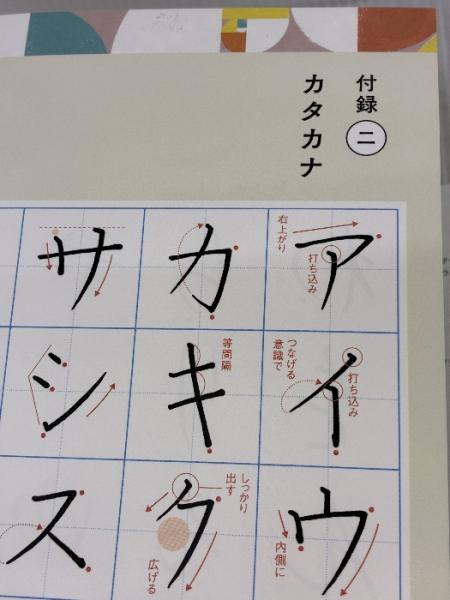 付録 二
カタカナ
ア
右上がり
打ち込み
イ
打ち込み
つなげる
意識で
ウ
内側に
カ
キ
等間隔
ク
しっかり
出す
広げる
サ
シ
ス